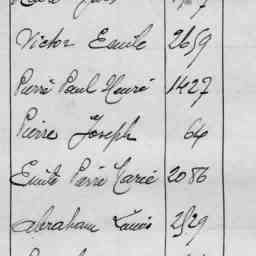 Victor Emile 2659
Pierre Paul Henri 1427
Pierre Joseph 64
Emile Pierre Marie 2086
Abraham Louis 2529